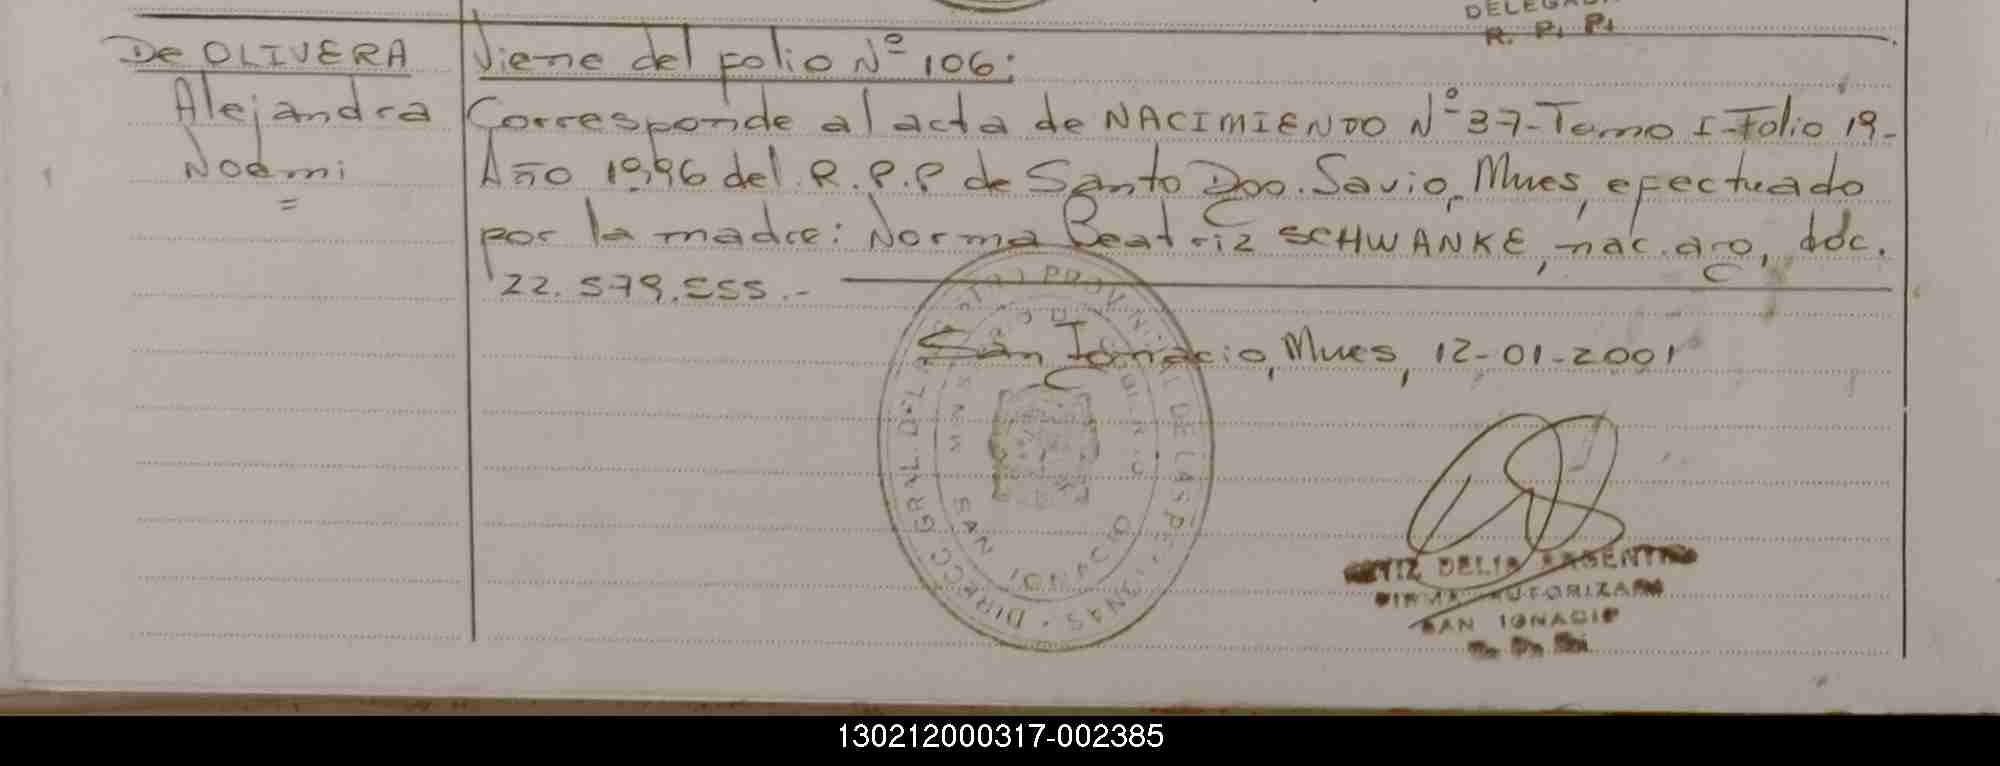 DELEGADA
R. P. P.
De OLIVERA
Alejandra
Noemi
=
Viene del folio Nº 106:
Corresponde al acta de NACIMIENTO Nº 37-Tomo I-Folio 19-
Año 1996 del R.P.P de Santo Doo. Savio, Mnes, efectuado
por la madre: Norma Beatriz SCHWANKE, nac. arg, doc.
22.579.555.-
San Ignacio, Mnes, 12-01-2001
DIRECC. GRAL. DEL REGISTRO PROVINCIAL DE LAS PERSONAS
SAN IGNACIO
DELIA ARGENTINA
FIRMA AUTORIZADA
SAN IGNACIO
R. P. P.
130212000317-002385